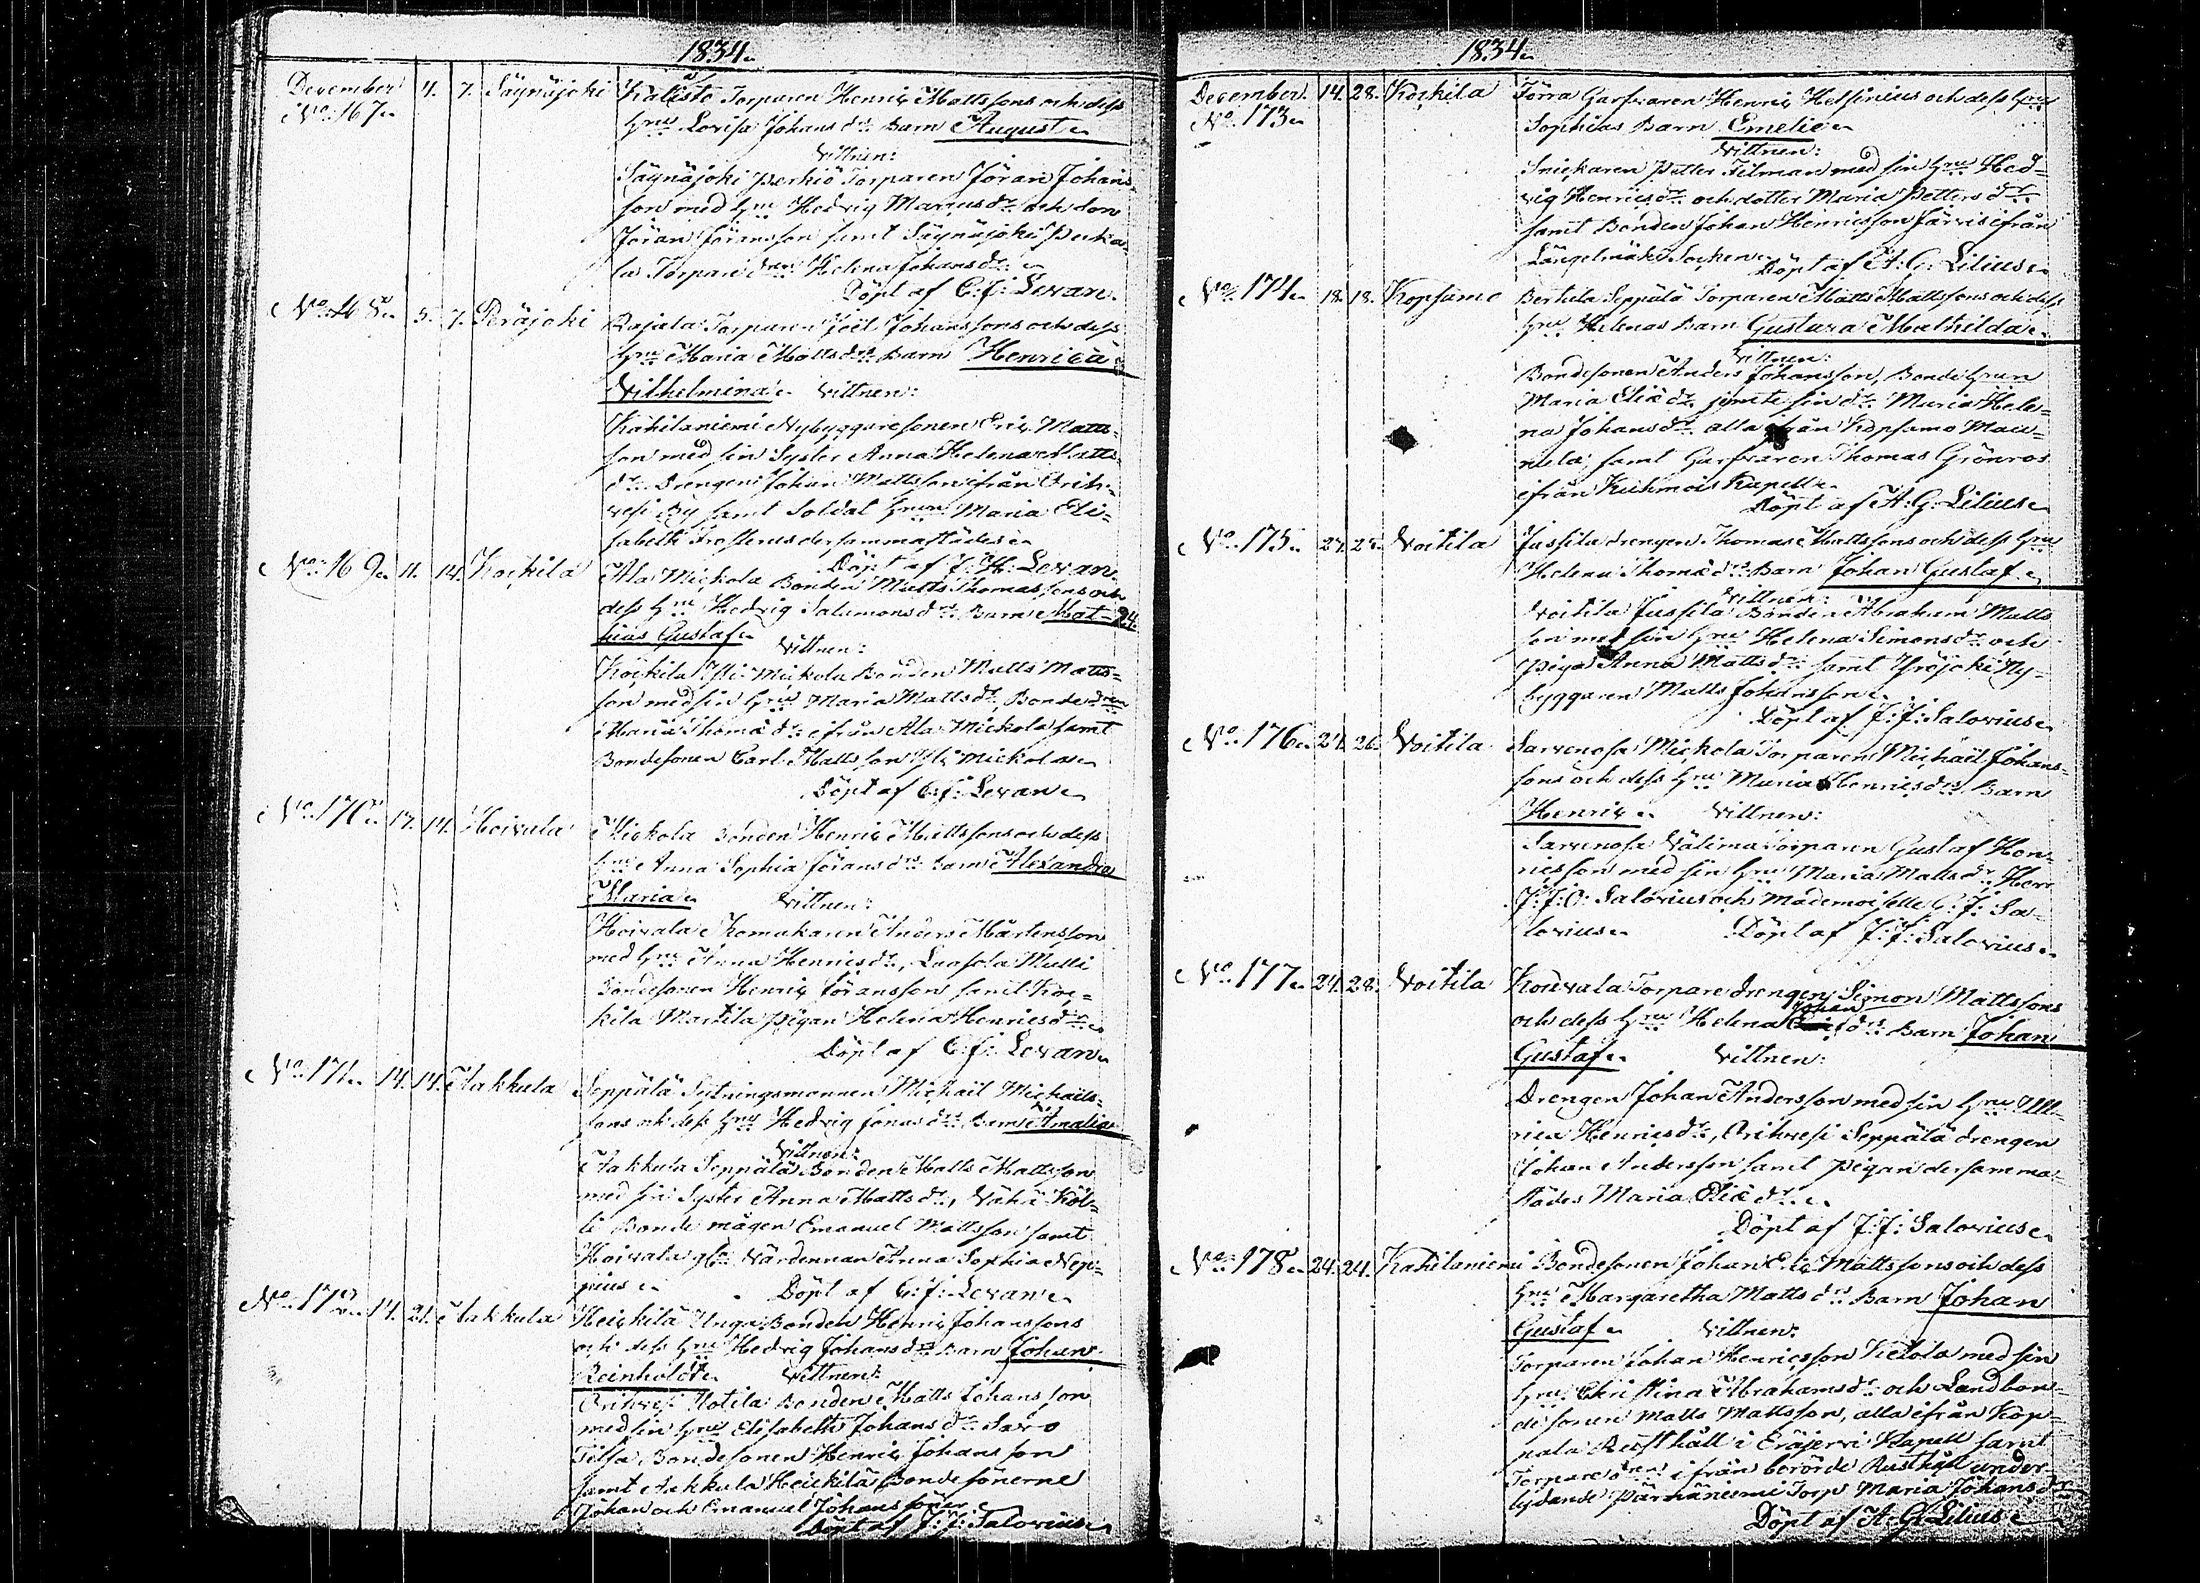 1834.
December 4. 7. Säynäjoki Kalisto Torparen Henric Mattssons och dess
No: 167. hru Lovisa Johans dr Barn August.
Vittnen:
Säynäjoki Perkiö Torparen Jöran Johans-
son med hru Hedvig Marcus dr och son
Jöran Jöransson samt Säynäjoki
Torpare Helena Johans dr
Döpt af C: J: Lexan.
No: 168. 5. 7. Peräjoki Rajala Torparen Joel Johanssons och dess
hru Maria Matts dr Barn Henrica
Vilhelmina. Vittnen:
Kahilaniemi Nybyggaresonen Eric Matts-
son med sin Syster Anna Helena Matts
dr Drengen Johan Mattsson ifrån Orih-
vesi By samt Soldat hrun Maria Eli-
sabeth dersammastädes
Döpt af J: H: Lexan.
No: 169. 11. 14. Kockila Ala Mickola Bonden Matts Thomassons och
dess hru Hedvig Salomons dr Barn Mat-
hias Gustaf. Vittnen:
Kockila Yli Mickola Bonden Matts Matts-
son med sin hru Maria Matts dr, Bonde
Maria Thomæ dr ifrån Ala Mickola samt
Bondesonen Carl Mattsson Yli Mickola
Döpt af C: J: Lexan.
No: 170. 17. 14. Hoivala Mickola Bonden Henric Mattssons och dess
hru Anna Sophia Jörans dr Barn Alexandra
Maria. Vittnen:
Hoivala Anders Mårtensson
med hru Anna Henrics dr, Laasola Matti
Bondesonen Henric Jöransson samt Koc-
kila Marttila pigan Helena Henrics dr.
Döpt af C: J: Lexan.
No: 171. 14. 14. Hakkula Seppälä Sytningsmannen Michail Michails-
sons och dess hru Hedvig Jonas dr Barn Amalia
Vittnen:
Hakkula Seppälä Bonden Matts Mattsson
med sin Syster Anna Matts dr, Vähä Köl-
li Bonde mågen Emanuel Mattsson samt
Hoivala Värdinnan Anna Sophia Nep-
pius. Döpt af C: J: Lexan.
No: 172. 14. 21. Hakkula Heickilä Unga Bonden Henric Johanssons
och dess hru Hedvig Johans dr Barn Johan
Reinholdt. Vittnen:
Orihvesi Hotila Bonden Matts Johansson
med sin hru Elisabeth Johans dr Savo
Tilsa Bondesonen Henric Johansson
samt Hakkula Heickilä Bondesönerne
Johan och Emanuel Johanssöner
Döpt af J: J: Salovius.
1834.
December. 14. 28. Kockila Törra Garfvaren Henric Helsinius och dess hru
No: 173. Sophias Barn Emelie.
Vittnen:
Snickaren Petter Tilman med sin hru Hed-
vig Henrics dr och dotter Maria Petters dr
samt Bonden Johan Henricsson Järvis ifrån
Längelmäki Socken. Döpt af A: G: Lilius.
No: 174. 18. 18. Kopsamo Bertula Seppälä Torparen Matts Mattssons och dess
hru Helenas Barn Gustava Mathilda.
Vittnen:
Bondesonen Anders Johansson, Bonde hrun
Maria Eliæ dr jemte sin dr Maria Hele-
na Johans dr alla ifrån Kopsamo Mau-
nula, samt Garfvaren Thomas Grönroos
ifrån Kuhmois Kapell.
Döpt af A: G: Lilius.
No: 175. 24. 25. Voitila Jussila drengen Thomas Mattssons och dess hru
Helena Thomæ dr Barn Johan Gustaf.
Vittnen:
Voitila Jussila Bonden Abraham Matts
son med sin hru Helena Simons dr och
Piga Anna Matts dr samt Ny-
byggaren Matts Johansson.
Döpt af J: J: Salovius.
No: 176. 24. 26. Voitila Sarvenoja Mickola Torparen Michaël Johans-
sons och dess hru Maria Henrics dr Barn
Henric. Vittnen:
Sarvenoja Välimä Torparen Gustaf Hen-
ricsson med sin hru Maria Matts dr Herr
J: J: O: Salovius och Mademoiselle C: J: Sa-
lovius. Döpt af J: J: Salovius.
No: 177. 24. 28. Voitila Koivula Torpare drengen Simon Mattssons
och dess hru Helena Johan dr Barn Johan
Gustaf. Vittnen:
Drengen Johan Andersson med sin hru Ull-
rica Henrics dr, Orihvesi Seppälä drengen
Johan Andersson samt pigan dersamma-
städes Maria Eliæ dr.
Döpt af J: J: Salovius.
No: 178. 24. 24. Kahilaniemi Bondesonen Johan Eric Mattssons och dess
hru Margaretha Matts dr Barn Johan
Gustaf. Vittnen:
Torparen Johan Henricsson Kietola med sin
hru Christina Abrahams dr och Landbon-
de sonen Matts Mattsson, alla ifrån Kop-
pala Rusthåll i Eräjervi Kapell samt
Torpare ifrån berörde Rusthåll under-
lydande Pärnäniemi Torp Maria Johans dr
Döpt af A: G: Lilius.